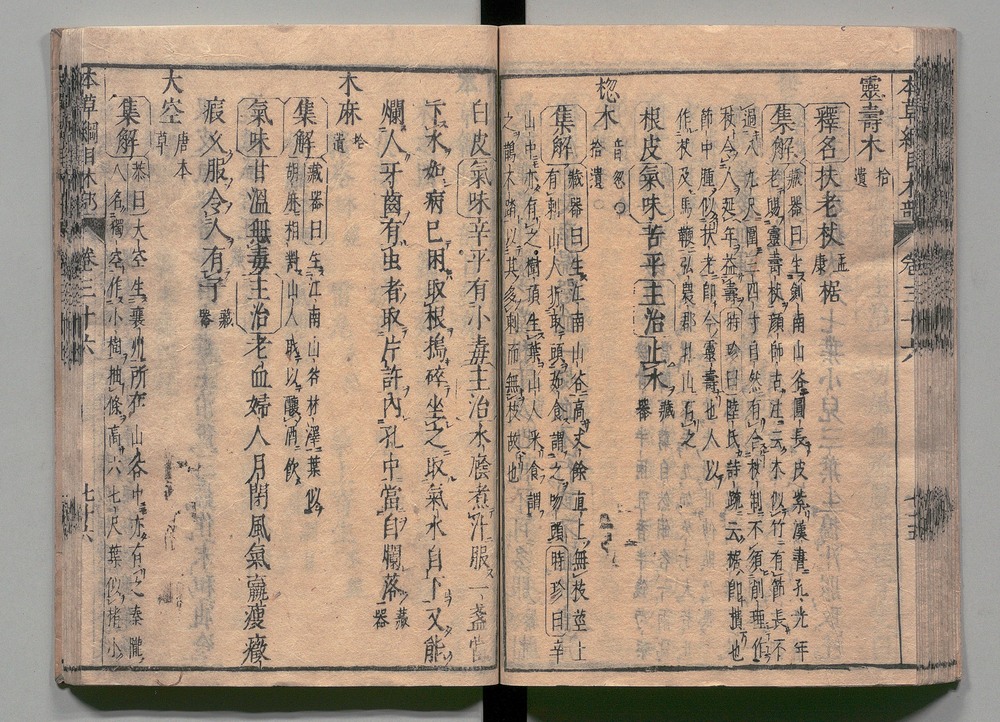 本草綱目木部 卷三十六 七十五
靈壽木 拾遺
釋名 扶老杖 孟康 椐
集解 藏器曰生劍南山谷圓長皮紫漢書孔光年
老賜靈壽杖顏師古注云木似竹有節長不
過八九尺圍三四寸自然有合杖制不須削理作
杖令人延年益壽時珍曰陸氏詩疏云椐即樻也
節中腫似扶老即今靈壽也人以
作杖及馬鞭弘農郡北山有之
根皮 氣味 苦平 主治 止水 藏器
楤木 音忽 拾遺
集解 藏器曰生江南山谷高丈餘直上無枝莖上
有刺山人折取頭茹食謂之吻頭時珍曰辛
山中亦有之樹頂生葉山人采食謂
之鵲不踏以其多刺而無枝故也
白皮 氣味 辛平有小毒 主治 水癊煮汁服一盞當
下水如病已困取根搗碎坐之取氣水自下又能
爛人牙齒有虫者取片許內孔中當自爛落 藏器
木麻 拾遺
集解 藏器曰生江南山谷林澤葉似
胡麻相對山人取以釀酒飲
氣味 甘溫無毒 主治 老血婦人月閉風氣羸瘦癥
瘕久服令人有子 藏器
大空 唐本草
集解 恭曰大空生襄州所在山谷中亦有之秦隴
人名獨空作小樹抽條高六七尺葉似楮小
本草綱目木部 卷三十六 七十六